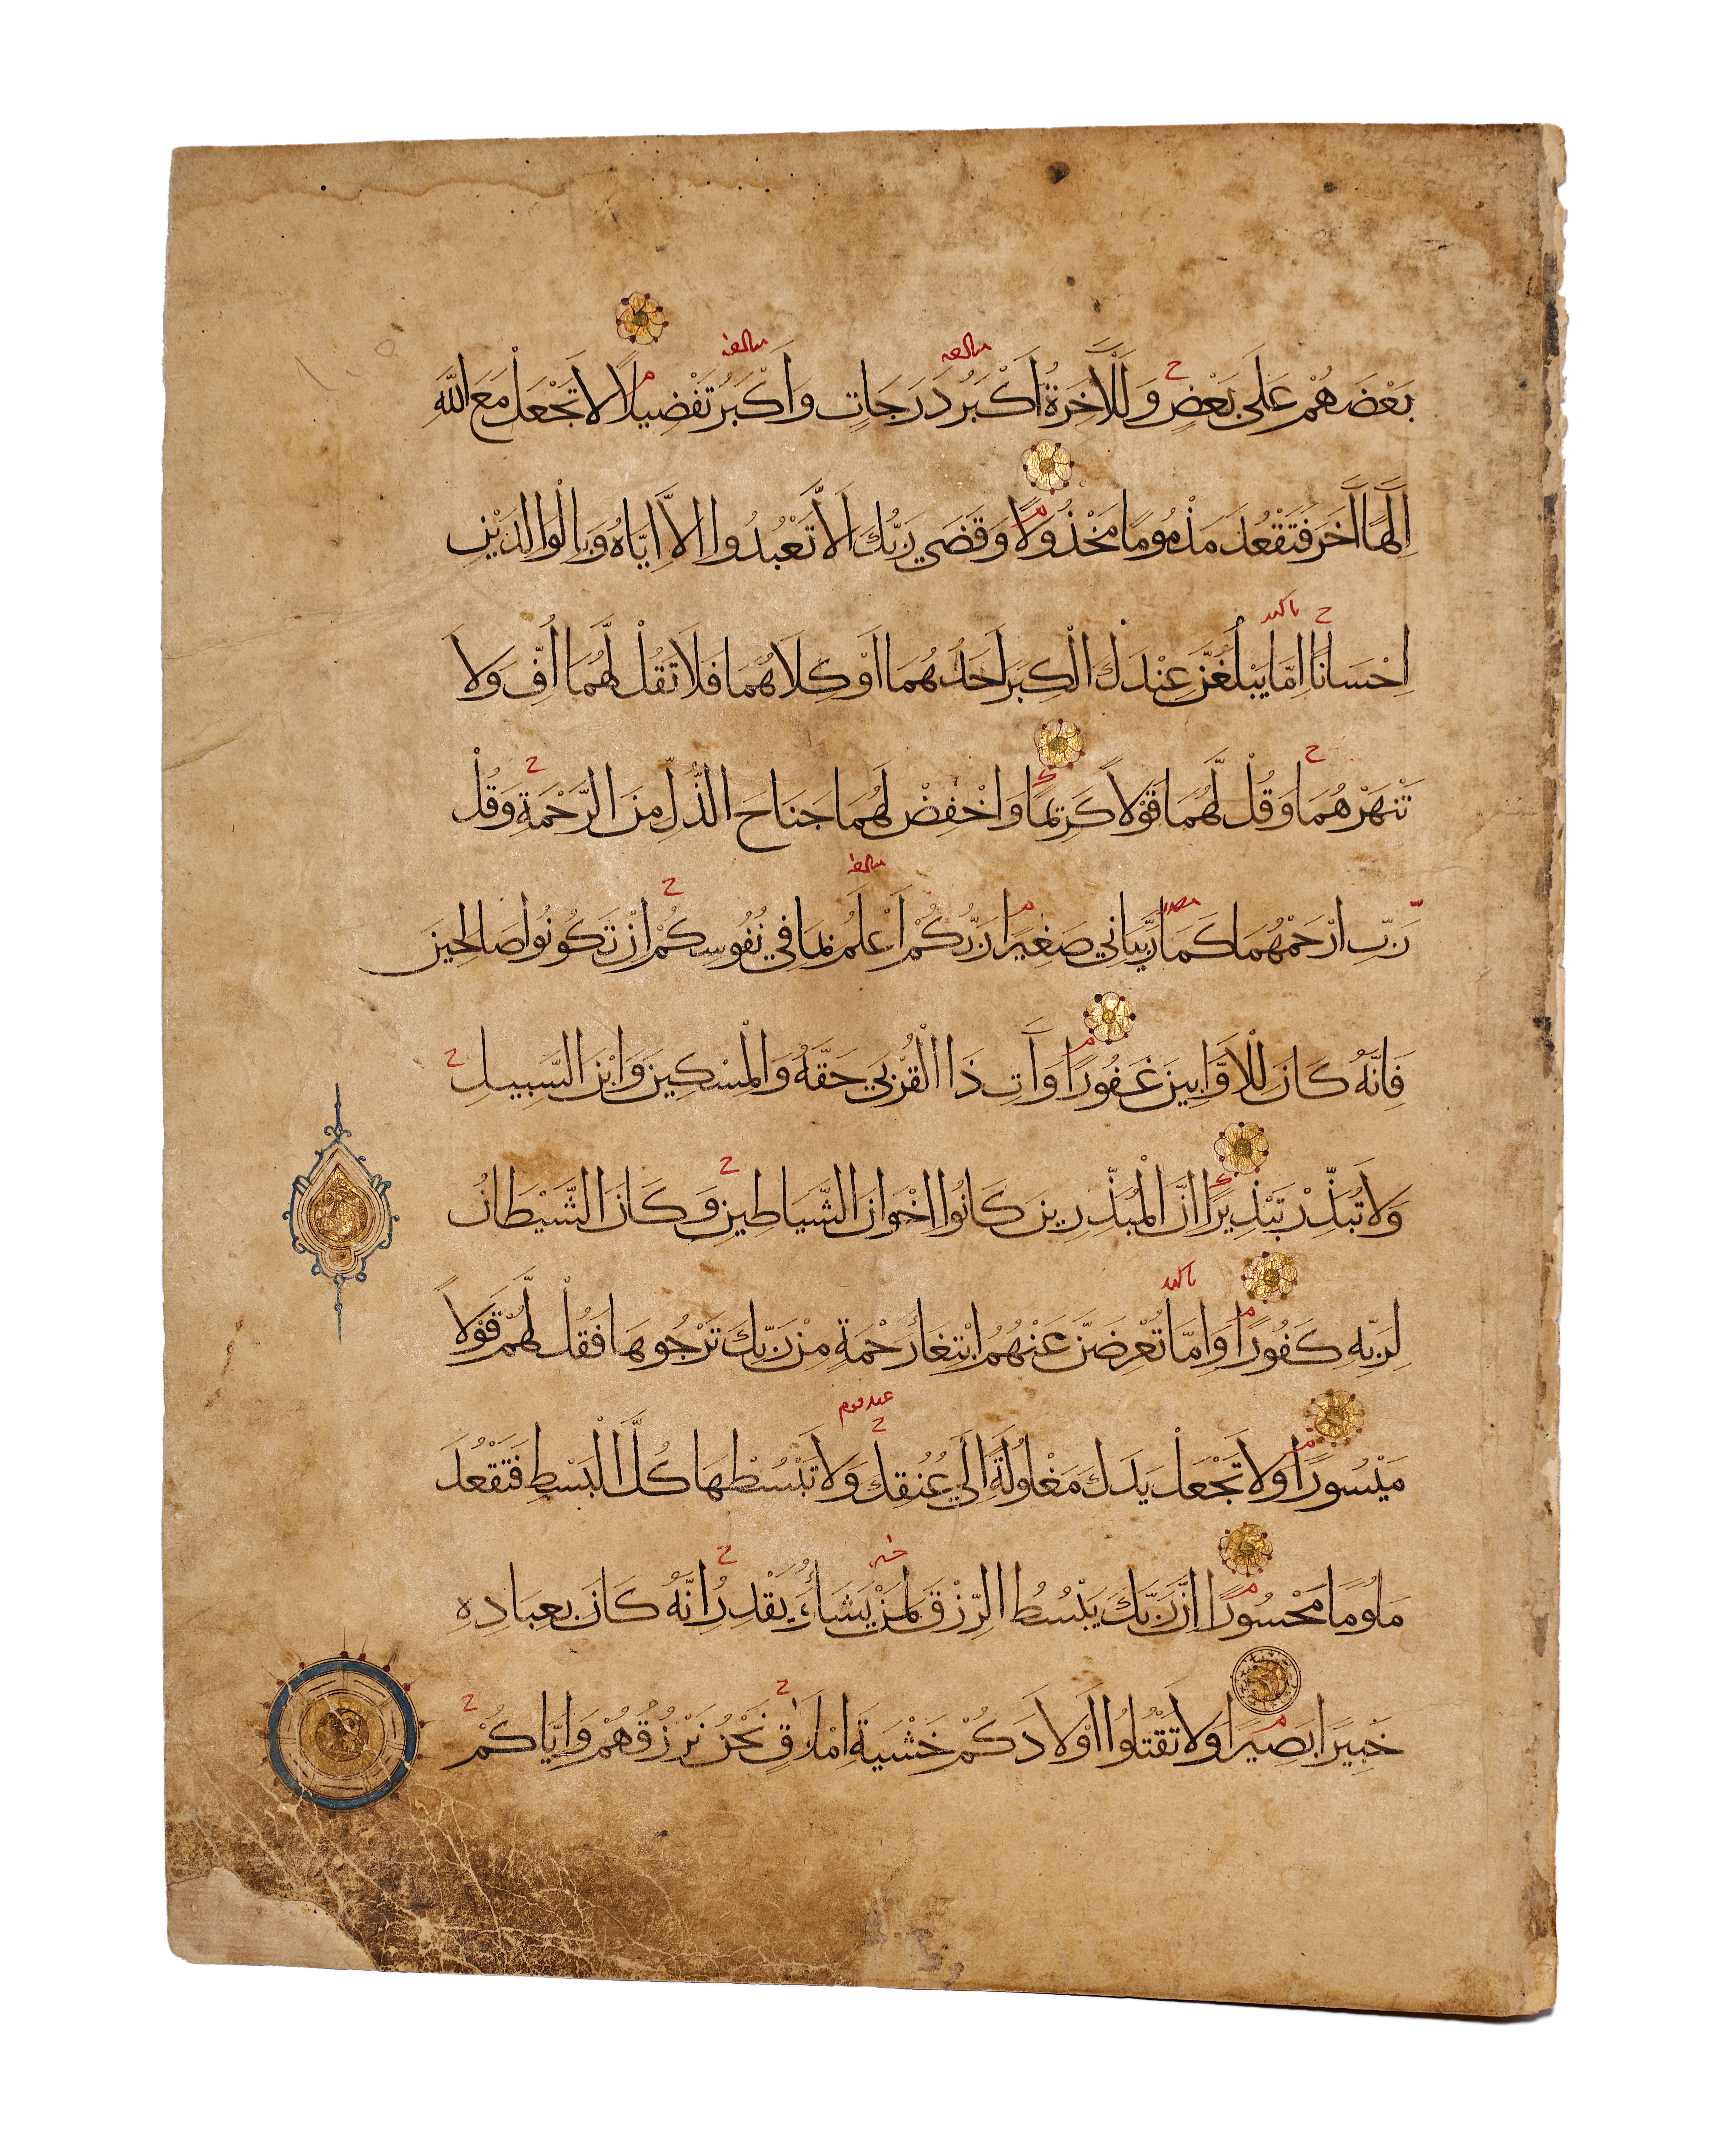 بَعْضَهُمْ عَلَى بَعْضٍ وَلَلْآخِرَةُ أَكْبَرُ دَرَجَاتٍ وَأَكْبَرُ تَفْضِيلًا لَا تَجْعَلْ مَعَ اللَّهِ
إِلَهًا آخَرَ فَتَقْعُدَ مَذْمُومًا مَخْذُولًا وَقَضَى رَبُّكَ أَلَّا تَعْبُدُوا إِلَّا إِيَّاهُ وَبِالْوَالِدَيْنِ
إِحْسَانًا إِمَّا يَبْلُغَنَّ عِنْدَكَ الْكِبَرَ أَحَدُهُمَا أَوْ كِلَاهُمَا فَلَا تَقُلْ لَهُمَا أُفٍّ وَلَا
تَنْهَرْهُمَا وَقُلْ لَهُمَا قَوْلًا كَرِيمًا وَاخْفِضْ لَهُمَا جَنَاحَ الذُّلِّ مِنَ الرَّحْمَةِ وَقُلْ
رَبِّ ارْحَمْهُمَا كَمَا رَبَّيَانِي صَغِيرًا رَبُّكُمْ أَعْلَمُ بِمَا فِي نُفُوسِكُمْ إِنْ تَكُونُوا صَالِحِينَ
فَإِنَّهُ كَانَ لِلْأَوَّابِينَ غَفُورًا وَآتِ ذَا الْقُرْبَى حَقَّهُ وَالْمِسْكِينَ وَابْنَ السَّبِيلِ
وَلَا تُبَذِّرْ تَبْذِيرًا إِنَّ الْمُبَذِّرِينَ كَانُوا إِخْوَانَ الشَّيَاطِينِ وَكَانَ الشَّيْطَانُ
لِرَبِّهِ كَفُورًا وَإِمَّا تُعْرِضَنَّ عَنْهُمُ ابْتِغَاءَ رَحْمَةٍ مِنْ رَبِّكَ تَرْجُوهَا فَقُلْ لَهُمْ قَوْلًا
مَيْسُورًا وَلَا تَجْعَلْ يَدَكَ مَغْلُولَةً إِلَى عُنُقِكَ وَلَا تَبْسُطْهَا كُلَّ الْبَسْطِ فَتَقْعُدَ
مَلُومًا مَحْسُورًا إِنَّ رَبَّكَ يَبْسُطُ الرِّزْقَ لِمَنْ يَشَاءُ وَيَقْدِرُ إِنَّهُ كَانَ بِعِبَادِهِ
خَبِيرًا بَصِيرًا وَلَا تَقْتُلُوا أَوْلَادَكُمْ خَشْيَةَ إِمْلَاقٍ نَحْنُ نَرْزُقُهُمْ وَإِيَّاكُمْ